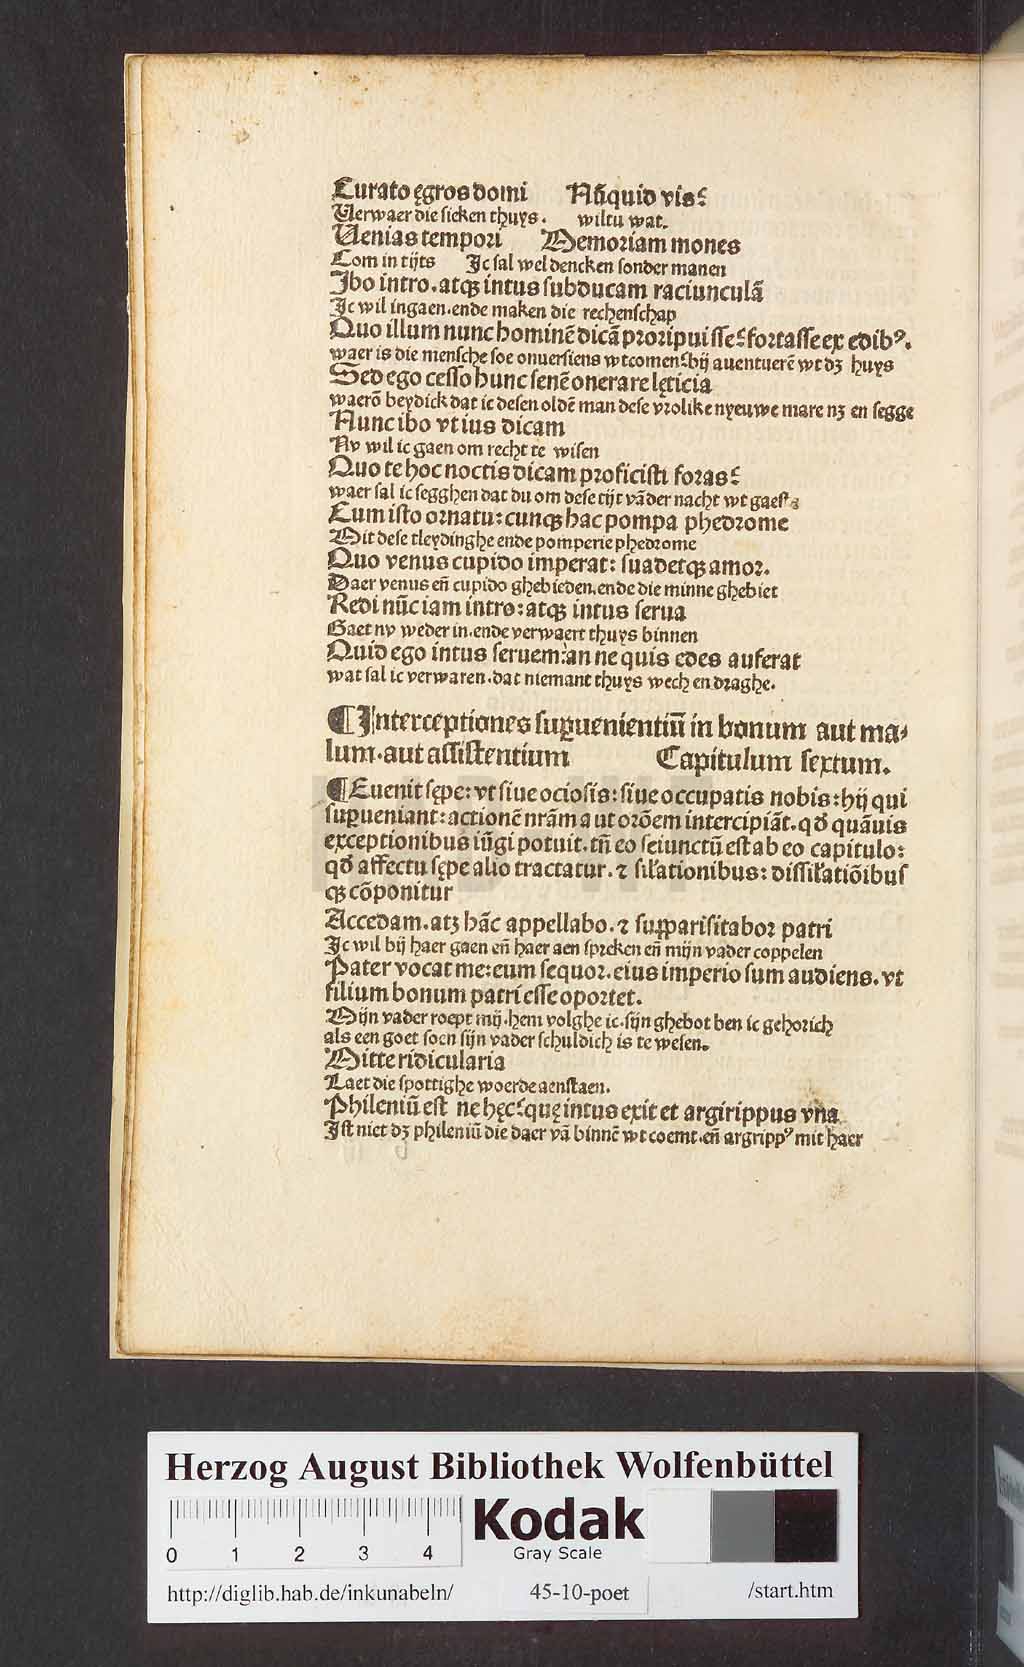 Curato ęgros domi Nūquid vis?
Verwaer die sieken thuys. wiltu wat.
Venias tempori Memoriam mones
Com in tijts Jc sal wel dencken sonder manen
Jbo intro. atqꝫ intus subducam raciunculā
Jc wil ingaen. ende maken die rechenschap
Quo illum nunc hominē dicā proripuisse? fortasse ex edibꝰ.
waer is die mensche soe onuersiens wtcomen? bij auentuerē wt dꝫ huys
Sed ego cesso hunc senē onerare lęticia
waerō beydick dat ic desen oldē man dese vrolike nyeuwe mare nꝫ en segge
Nunc ibo vt ius dicam
Nv wil ic gaen om recht te wisen
Quo te hoc noctis dicam proficisti foras?
waer sal ic segghen dat du om dese tijt vā der nacht wt gaest
Cum isto ornatu: cunqꝫ hac pompa phedrome
Mit dese cleydinghe ende pomperie phedrome
Quo venus cupido imperat: suadetqꝫ amor.
Daer venus eñ cupido ghebieden. ende die minne ghebiet
Redi nūc iam intro: atqꝫ intus serua
Gaet nv weder in. ende verwaert thuys binnen
Quid ego intus seruem? an ne quis edes auferat
wat sal ic verwaren. dat niemant thuys wech en draghe.
¶ Interceptiones suꝑuenientiū in bonum aut ma-
lum. aut assistentium Capitulum sextum.
¶ Euenit sępe: vt siue ociosis: siue occupatis nobis: hij qui
suꝑueniant: actionē nrām aut orōem intercipiāt. qđ quāuis
exceptionibus iūgi potuit. tñ eo seiunctū est ab eo capitulo:
qđ affectu sępe alio tractatur. ⁊ siłationibus: dissiłatiōibus
qꝫ cōponitur
Accedam. atꝫ hāc appellabo. ⁊ suꝑparisitabor patri
Jc wil bij haer gaen eñ haer aen spreken eñ mijn vader coppelen
Pater vocat me: eum sequor. eius imperio sum audiens. vt
filium bonum patri esse oportet.
Mijn vader roept mij. hem volghe ic. sijn ghebot ben ic gehorich
als een goet soen sijn vader schuldich is te wesen.
Mitte ridicularia
Laet die spottighe woerde aenstaen.
Phileniū est ne hęc? quę intus exit et argirippus vna
Jst niet dꝫ phileniū die daer vā binnē wt coemt. eñ argrippꝰ mit haer
Herzog August Bibliothek Wolfenbüttel
0 1 2 3 4
Kodak
Gray Scale
http://diglib.hab.de/inkunabeln/ 45-10-poet /start.htm